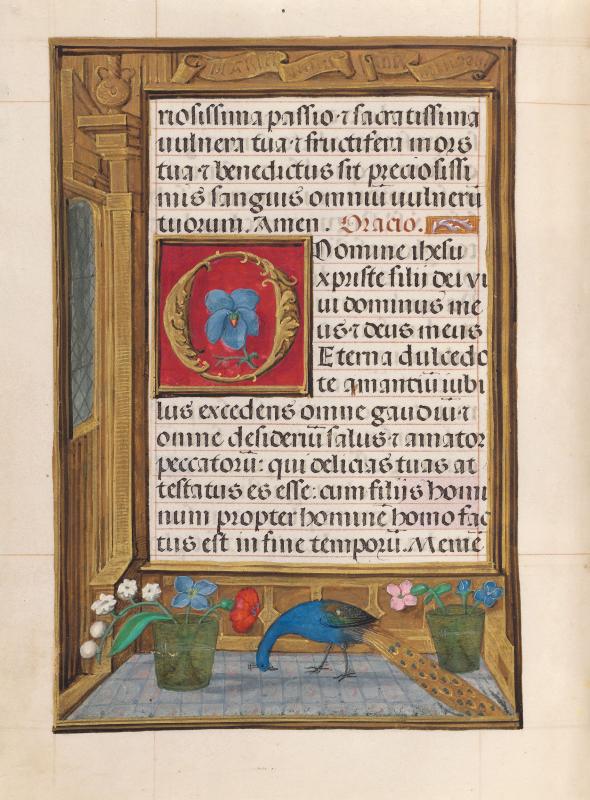 riosissima passio ⁊ sacratissima
uulnera tua ⁊ fructifera mors
tua ⁊ benedictus sit preciosissi
mis sanguis omniū uulnerū
tuorum. Amen. Oracio.
O Domine ihesu
xpriste filij dei vi
ui dominus me
us ⁊ deus meus
Eterna dulcedo
te amantiū iubi
lus excedens omne gaudiū ⁊
omne desideriū salus ⁊ amator
peccatorū: qui delicias tuas at
testatus es esse: cum filijs homi
num propter hominē homo fac
tus est in fine temporū. Memē